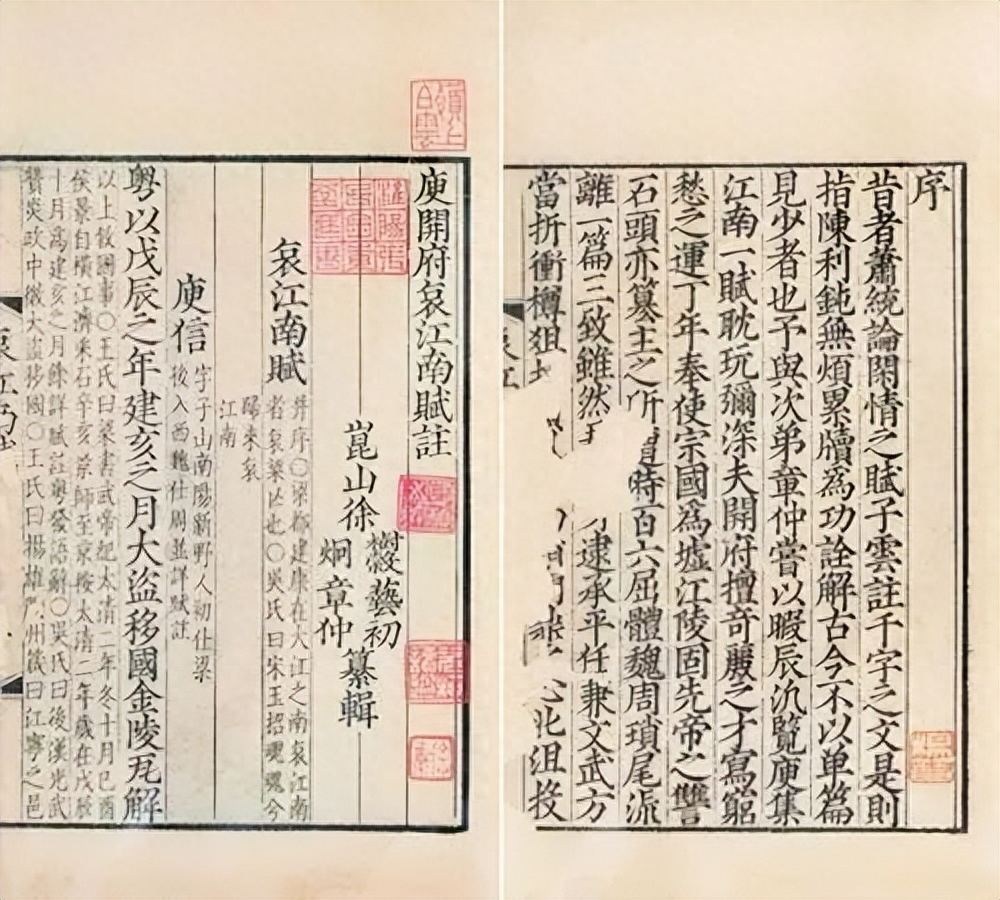 序
昔者蕭統論閑情之賦子雲註千字之文是則
指陳利鈍無煩累牘為功詮解古今不以单篇
見少者也予與次弟章仲嘗以暇辰汎覽庾集
江南一賦耽玩彌深夫開府擅奇麗之才寫窮
愁之運丁年奉使宗國為墟江陵固先帝之讐
石頭亦篡主之所時百六屈體魏周瑣尾流
離一篇三致雖然逮承平任兼文武方
當折衝樽俎心北徂投
嶺上白雲
庾開府哀江南賦註
崑山徐樹穀藝初
炯章仲纂輯
哀江南賦
并序〇梁都建康在大江之南哀江南
者哀梁亡也〇吳氏曰宋玉招魂魂兮
歸来哀
江南
庾信
字子山南陽新野人初仕梁
後入西魏仕周並詳賦註
粤以戊辰之年建亥之月大盜移國金陵瓦解
以上敘國事〇王氏曰梁書武帝紀太清二年冬十月己酉
侯景自橫江濟采石辛亥景師至京按太清二年歲在戊辰
十月為建亥之月餘詳賦註粤發語辭〇吳氏曰後漢光武
贊炎政中微大盜移國〇王氏曰揚雄州箴曰江寧之邑